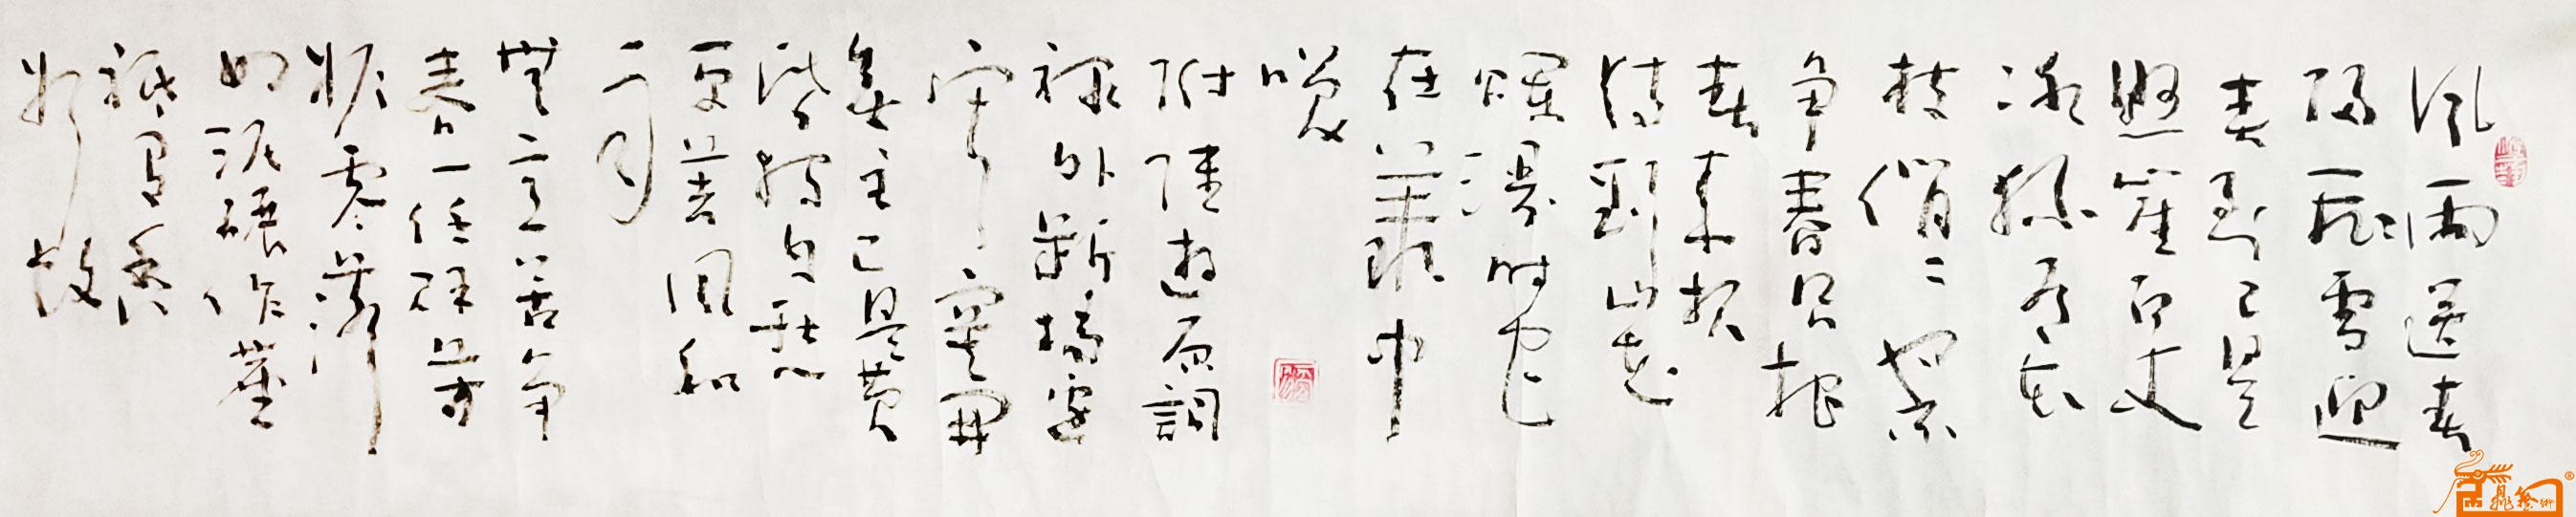 风雨送春
归飛雪迎
春到已是
懸崖百丈
冰犹有花
枝俏俏也不
争春只把
春来报
待到山花
烂漫时她
在叢中
笑
附陸游原詞
驿外断桥边
寂寞開
無主已是黄
昏独自愁
更著风和
雨
無意苦争
春一任群芳
妒零落
成泥碾作塵
香
如故